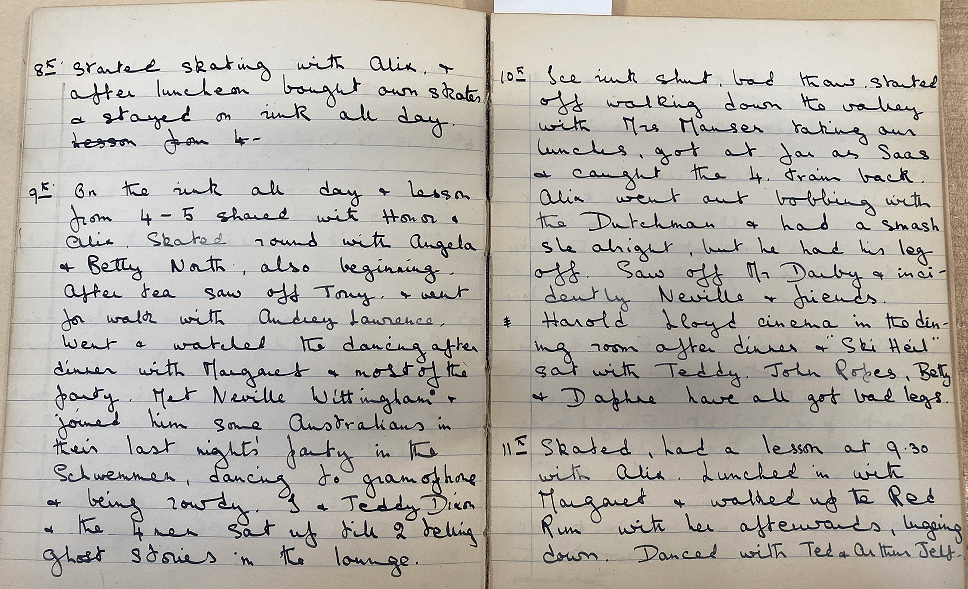 8th Started skating with Alix, +
after luncheon bought own skates
& stayed on rink all day.
Lesson from 4-
9th On the rink all day & lesson
from 4-5 shared with Honor &
Alix. Skated round with Angela
& Betty North, also beginning.
After tea saw off Tony. & went
for walk with Audrey Lawrence.
Went & watched the dancing after
dinner with Margaret & most of the
party. Met Neville Wittingham &
joined him some Australians in
their last nights' party in the
Schwemmen, dancing to gramophone
& being rowdy. I & Teddy Dixon
& the 4 men sat up till 2 telling
ghost stories in the lounge.
10th Ice rink shut, bad thaw, started
off walking down the valley
with Mrs Manser taking our
lunches, got at far as Saas
& caught the 4. train back.
Alix went out bobbing with
the Dutchman & had a smash
she alright, but he had his leg
off. Saw off Mr Darby & inci-
dently Neville & friends.
Harold Lloyd cinema in the din-
ing room after dinner & "Ski Heil"
sat with Teddy. John Ropes, Betty
& Daphne have all got bad legs.
11th Skated, had a lesson at 9.30
with Alix. Lunched in with
Margaret & walked up to Red
Run with her afterwards, lugeing
down. Danced with Ted & Arthur Jelf.